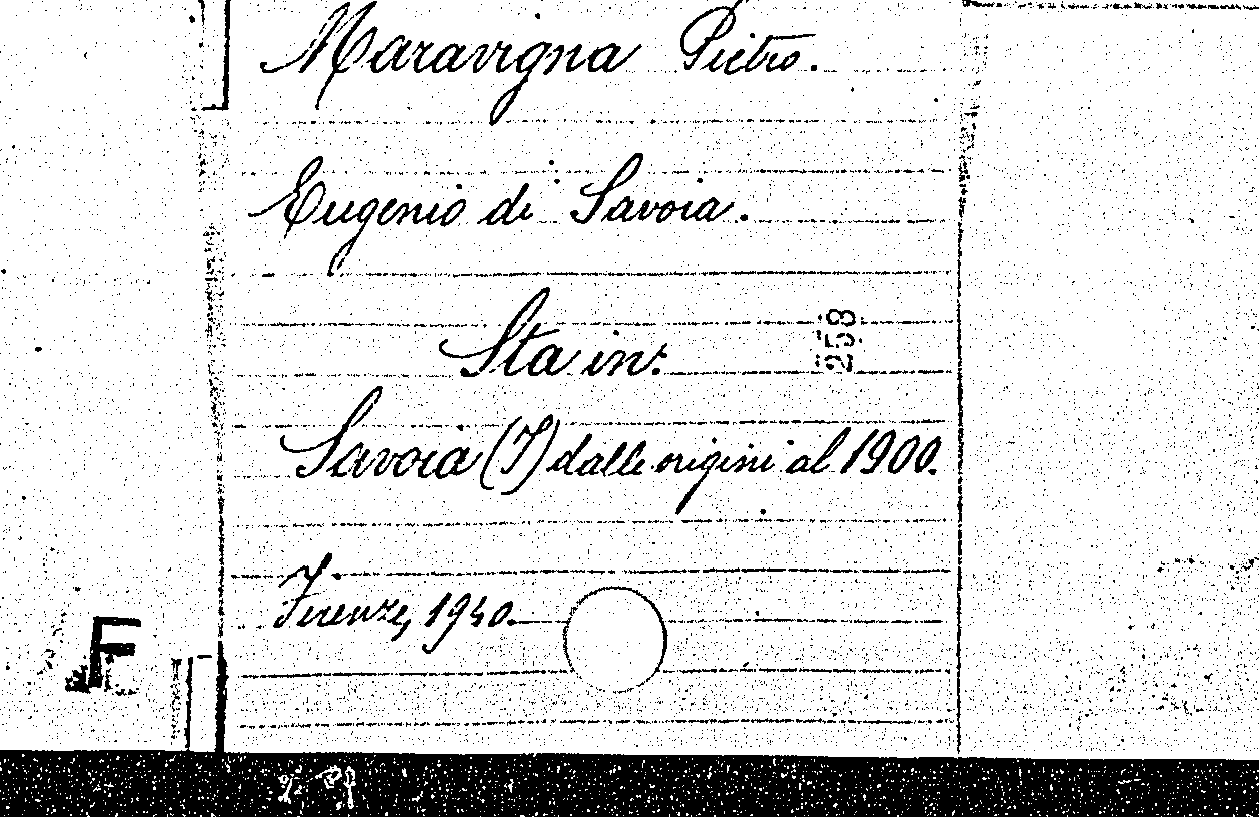 Maravigna Pietro.
Eugenio di Savoia.
Sta in:
258
Savoia (I) dalle origini al 1900.
Firenze, 1940.
F